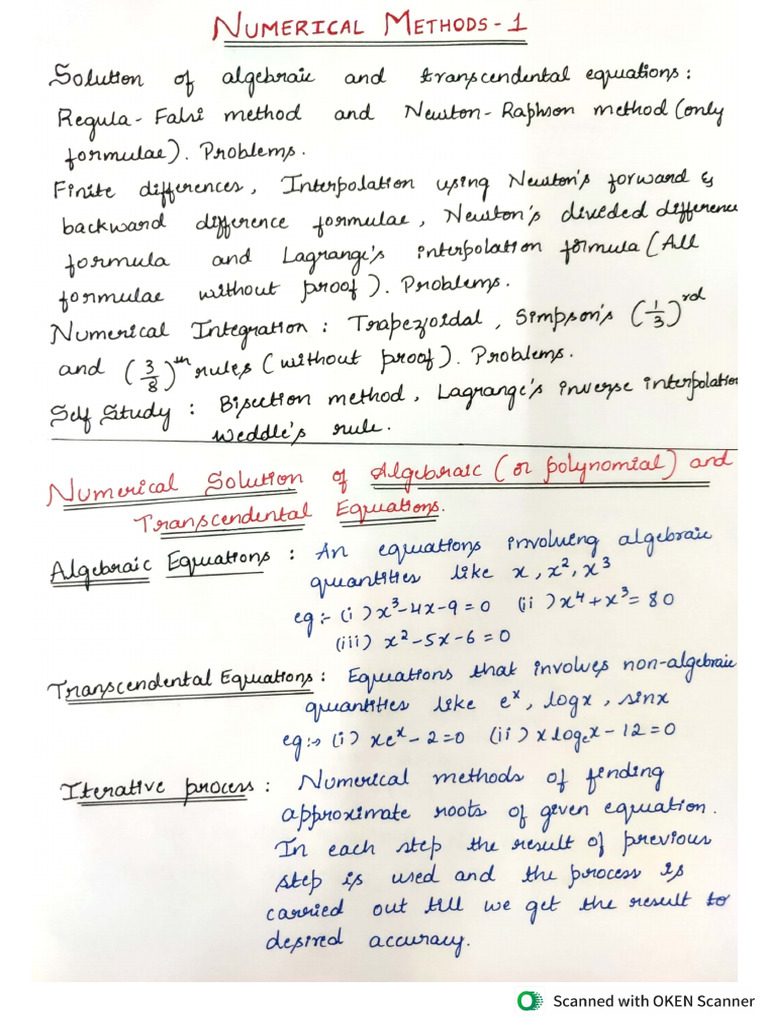 NUMERICAL METHODS - 1
Solution of algebraic and transcendental equations :
Regula - Falsi method and Newton - Raphson method (only
formulae). Problems.
Finite differences, Interpolation using Newton's forward &
backward difference formulae, Newton's divided difference
formula and Lagrange's interpolation formula (All
formulae without proof). Problems.
Numerical Integration : Trapezoidal, Simpson's (1/3)rd
and (3/8)th rules (without proof). Problems.
Self Study : Bisection method, Lagrange's inverse interpolation
Weddle's rule.
Numerical Solution of Algebraic (or polynomial) and
Transcendental Equations.
Algebraic Equations : An equations involving algebraic
quantities like x, x², x³
eg:- (i) x³-4x-9=0 (ii) x⁴+x³=80
(iii) x²-5x-6=0
Transcendental Equations : Equations that involves non-algebraic
quantities like eˣ, logx, sinx
eg:→ (i) xeˣ-2=0 (ii) x logₑx-12=0
Iterative process : Numerical methods of finding
approximate roots of given equation.
In each step the result of previous
step is used and the process is
carried out till we get the result to
desired accuracy.
Scanned with OKEN Scanner